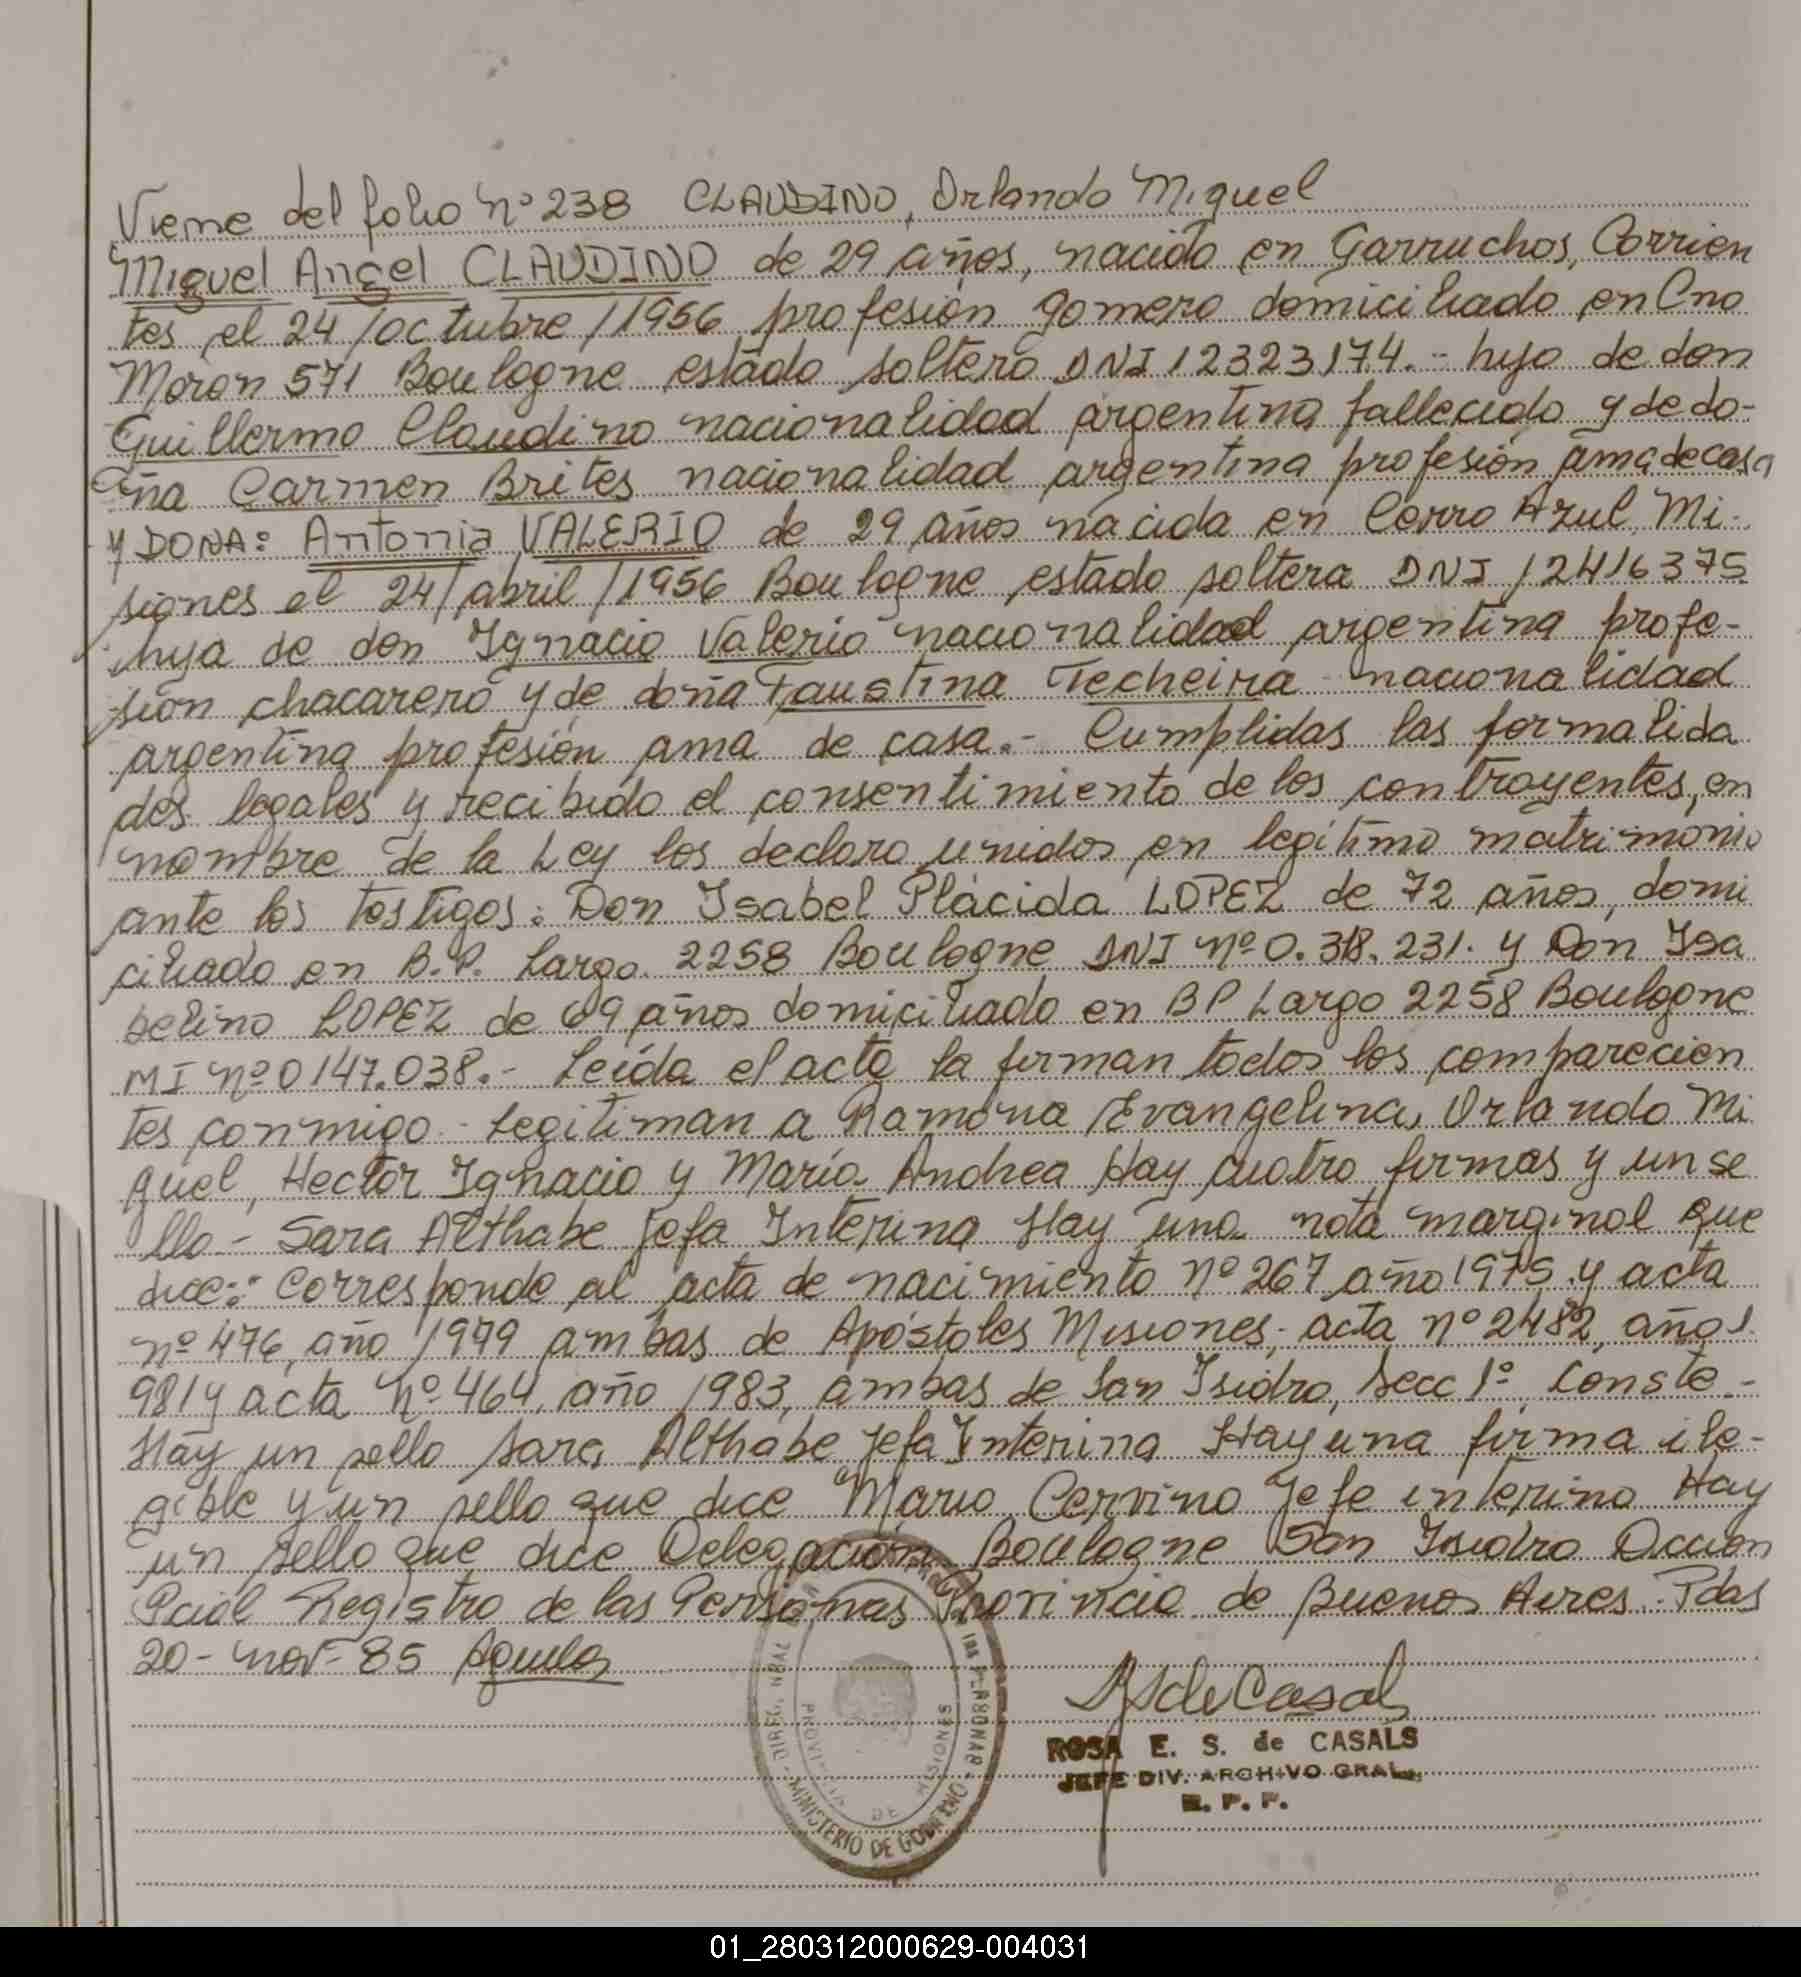 Viene del folio nº 238 CLAUDINO, Orlando Miguel
Miguel Angel CLAUDINO de 29 años, nacido en Garruchos, Corrien
tes el 24/octubre/1956 profesión gomero domiciliado en Cno
Morón 571 Boulogne estado soltero DNI 12323174.- hijo de don
Guillermo Claudino nacionalidad argentina fallecido y de do-
ña Carmen Brites nacionalidad argentina profesión ama de casa
y DOÑA: Antonia VALERIO de 29 años nacida en Cerro Azul Mi-
siones el 24/abril/1956 Boulogne estado soltera DNI 12416375
hija de don Ignacio Valerio nacionalidad argentina profe-
sión chacarero y de doña Faustina Techeira nacionalidad
argentina profesión ama de casa.- Cumplidas las formalida
des legales y recibido el consentimiento de los contrayentes, en
nombre de la Ley los declaro unidos en legítimo matrimonio
ante los testigos: Don Isabel Plácida LOPEZ de 72 años, domi
ciliado en B.P. Largo 2258 Boulogne DNI nº 0.318.231. y Don Isa
belino LOPEZ de 69 años domiciliado en BP Largo 2258 Boulogne
MI nº 0147.038.- Leída el acta la firman todos los comparecien
tes conmigo.- Legitiman a Ramona Evangelina, Orlando Mi
guel, Hector Ignacio y María Andrea Hay cuatro firmas y un se
llo - Sara Althabe Jefa Interina Hay una nota marginal que
dice: Corresponde al acta de nacimiento nº 267 año 1975 y acta
nº 476, año 1979 ambas de Apóstoles Misiones; acta nº 2482, año 1
981 y acta nº 464, año 1983, ambas de San Isidro, Secc 1º. Conste.-
Hay un sello Sara Althabe Jefa Interina Hay una firma ile-
gible y un sello que dice Mario Cervino Jefe interino Hay
un sello que dice Delegación Boulogne San Isidro Dccion
Pcial Registro de las Personas Provincia de Buenos Aires. Pdas
20-nov-85
ROSA E. S. de CASALS
JEFE DIV. ARCHIVO GRAL.
R. P. P.
MINISTERIO DE GOBIERNO
PROVINCIA DE MISIONES
01_280312000629-004031